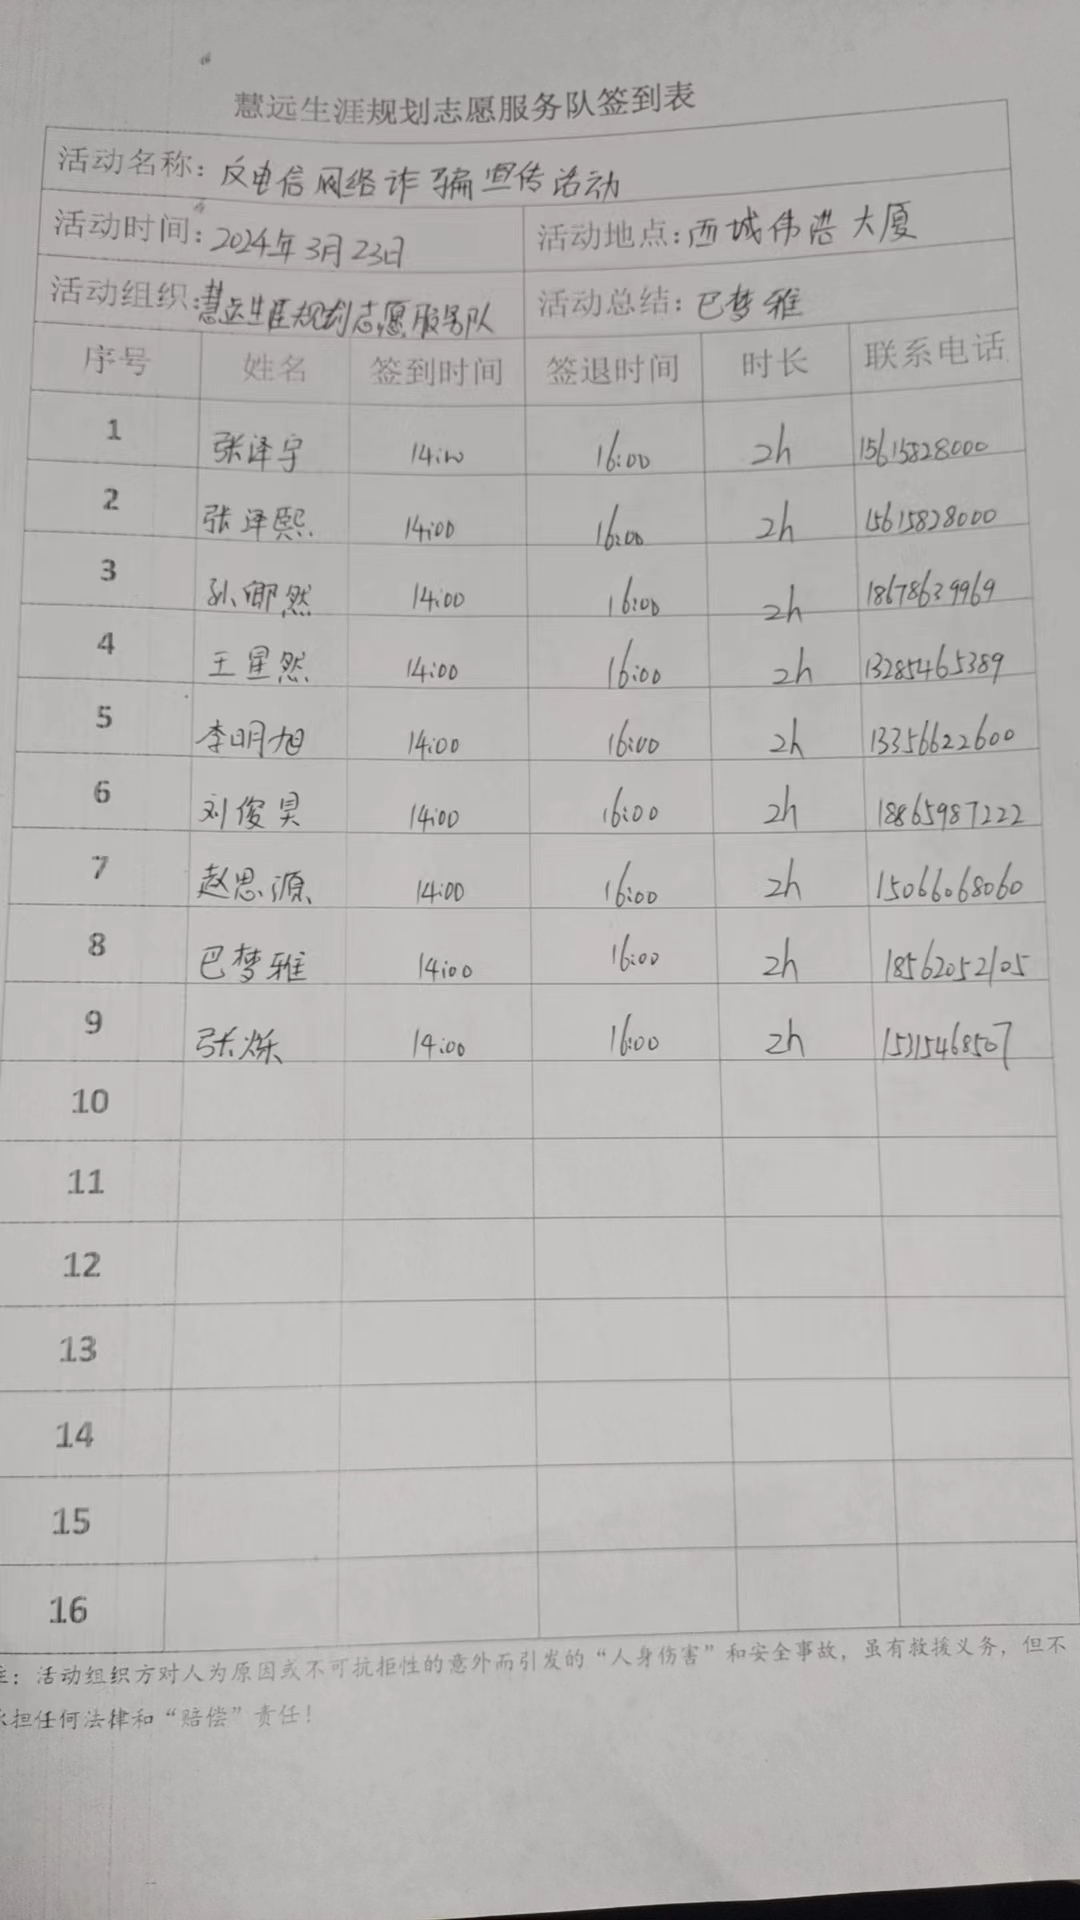 慧远生涯规划志愿服务队签到表
活动名称：反电信网络诈骗宣传活动
活动时间：2024年3月23日 活动地点：西城伟浩大厦
活动组织：慧远生涯规划志愿服务队 活动总结：巴梦雅
序号 姓名 签到时间 签退时间 时长 联系电话
1 张泽宇 14:00 16:00 2h 15615828000
2 张泽熙 14:00 16:00 2h 15615828000
3 孙卿然 14:00 16:00 2h 18678639969
4 王星然 14:00 16:00 2h 13285465389
5 李明旭 14:00 16:00 2h 13356622600
6 刘俊昊 14:00 16:00 2h 18865987222
7 赵思源 14:00 16:00 2h 15066068060
8 巴梦雅 14:00 16:00 2h 18562052105
9 张烁 14:00 16:00 2h 15315468507
10
11
12
13
14
15
16
注：活动组织方对人为原因或不可抗拒性的意外而引发的“人身伤害”和安全事故，虽有救援义务，但不
承担任何法律和“赔偿”责任！